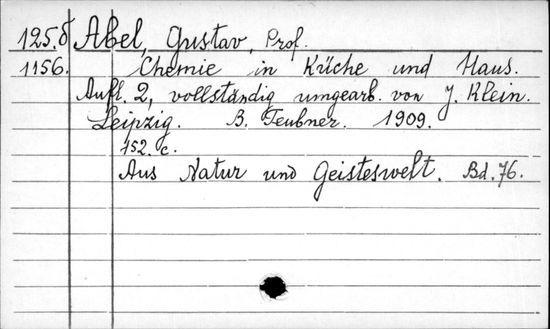 125.δ Abel, Gustav, Prof.
1156. Chemie in Küche und Haus.
Aufl. 2, vollständig umgearb. von J. Klein.
Leipzig. B. Teubner. 1909.
152. c.
Aus Natur und Geisteswelt. Bd. 76.